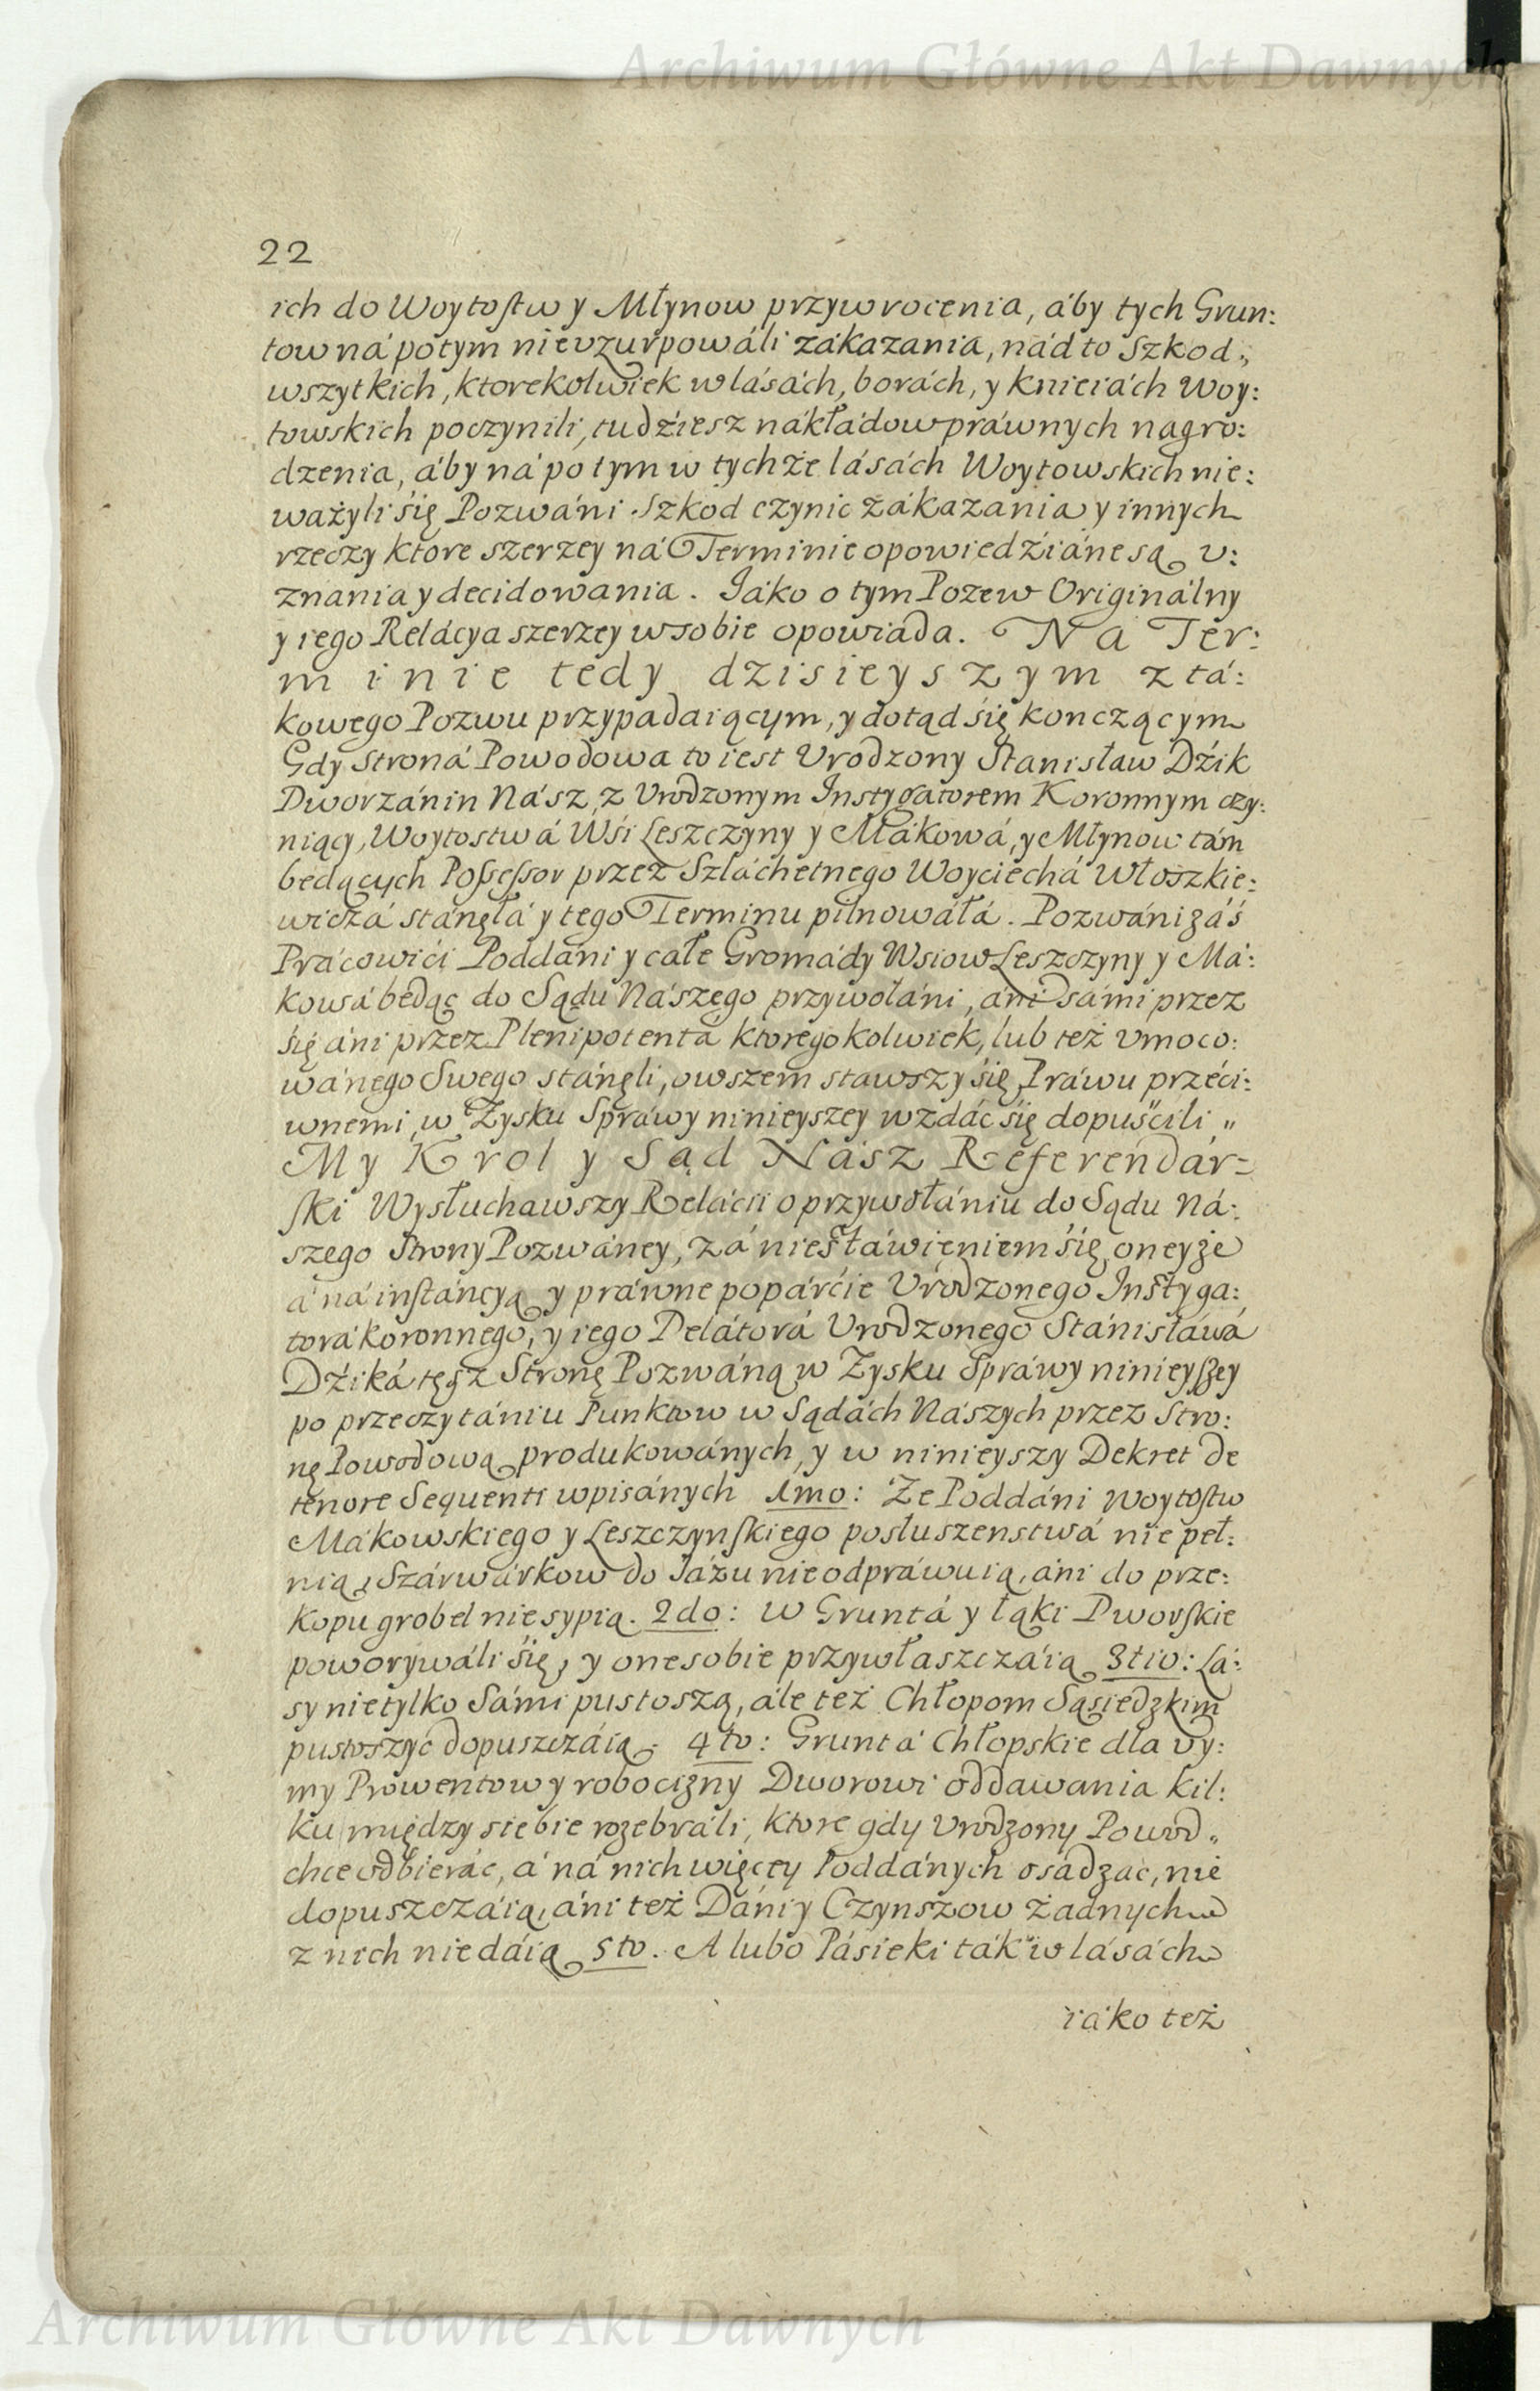 Archiwum Główne Akt Dawnych
22
ich do Woytostw y Młynow przywrocenia, áby tych Grun:
tow ná potym nievzurpowáli zákazania, nád to Szkod„
wszytkich, ktorekolwiek w lásách, borách, y knieiách Woy:
towskich poczynili, tudźiesz nákłádow práwnych nagro:
dzenia, áby ná potym w tychże lásách Woytowskich nie:
ważyli się Pozwáni Szkod czynic zákazania y innych
rzeczy ktore szerzey ná Terminie opowiedźiáne są v:
znania y decidowania. Iáko o tym Pozew Originálny
y iego Relácya szerzey w sobie opowiada. Na Ter:
minie tedy dzisieyszym z tá:
kowego Pozwu przypadaiącym, y dotąd się konczącym
Gdy Strona Powodowa to iest Vrodzony Stanisław Dźik
Dworzánin Nász z Urodzonym Instygatorem Koronnym czy:
niący, Woytostwá Wśi Leszczyny y Mákowá, y Młynow tám
będących Possessor przez Szláchetnego Woyciechá Włoszkie:
wiczá stánęłá y tego Terminu pilnowáłá. Pozwáni záś
Prácowići Poddáni y całe Gromády Wsiow Leszczyny y Má:
kowá będąc do Sądu Nászego przywołáni, áni sámi przez
się áni przez Plenipotentá ktoregokolwiek, lub też vmoco:
wánego Swego stánęli, owszem stawszy się Práwu przeći:
wnemi, w Zysku Spráwy ninieyszey wzdác się dopuśćili„
My Krol y Sąd Nász Referendár=
ski Wysłuchawszy Relácii o przywołániu do Sądu Ná:
szego Strony Pozwáney, zá niestáwieniem się oneyże
á ná instáncyą y práwne popárćie Urodzonego Instyga:
torá koronnego, y iego Delátorá Urodzonego Stánisłáwá
Dźiká tęsz Stronę Pozwáną w Zysku Spráwy ninieyszey
po przeczytániu Punktow w Sądách Nászych przez Stro:
nę Powodową produkowánych, y w ninieyszy Dekret de
tenore Sequenti wpisánych 1mo: Że Poddáni Woytostw
Mákowskiego y Leszczynskiego posłuszenstwá nie peł:
nią, Szárwárkow do Iázu nie odpráwuią, áni do prze:
kopu grobel nie sypią. 2do: W Gruntá y łąki Dworskie
poworywáli się, y one sobie przywłaszczáią 3tio: Lá:
sy nie tylko Sámi pustoszą, ále też Chłopom Sąsiedzkim
pustoszyć dopuszczáią. 4to: Gruntá Chłopskie dla vy:
my Prowentow y robocizny Dworowi oddawania kil:
ku między siebie rozebráli, ktore gdy Vrodzony Powod„
chce odbierác, á ná nich więcey Poddánych osadzac, nie
dopuszczáią, áni też Dáni y Czynszow żadnych
z nich nie dáią 5to. A lubo Pásieki ták w lásách
iáko też
Archiwum Główne Akt Dawnych